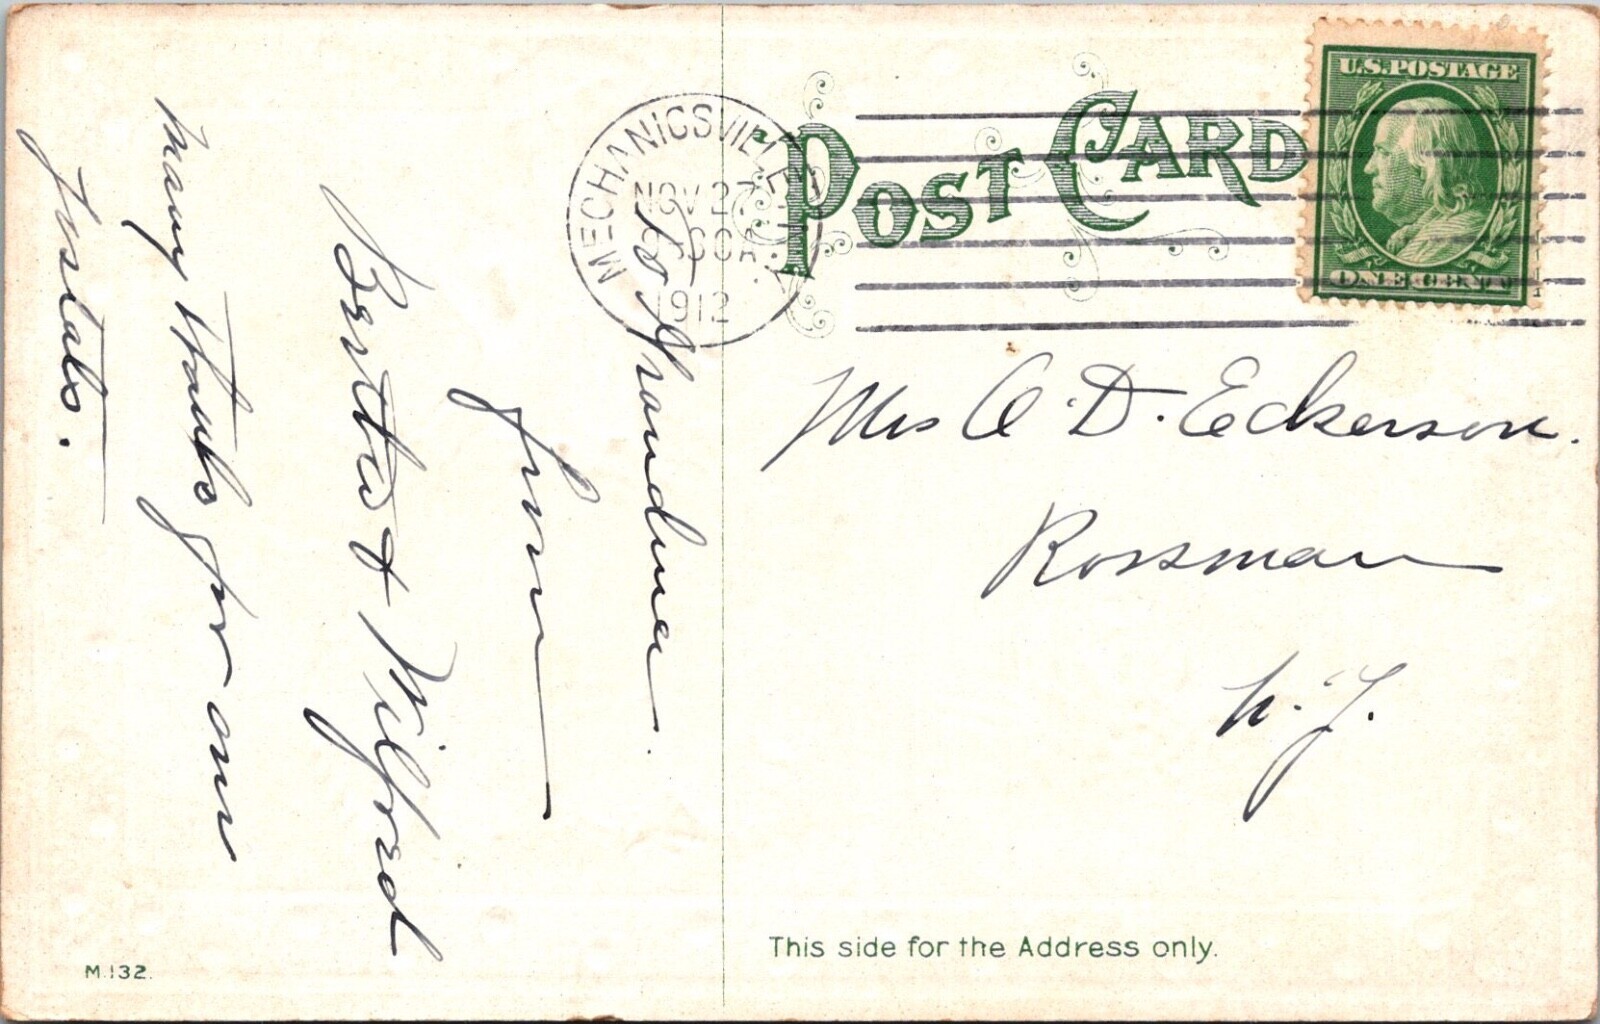 POST CARD
U.S. POSTAGE
ONE CENT
MECHANICSVILLE N.Y.
NOV 27
1912
To Grandma.
from
Bertha & Milford
Many thanks for our
Mrs A. D. Eckerson.
Rossman
N.Y.
This side for the Address only.
M.132.